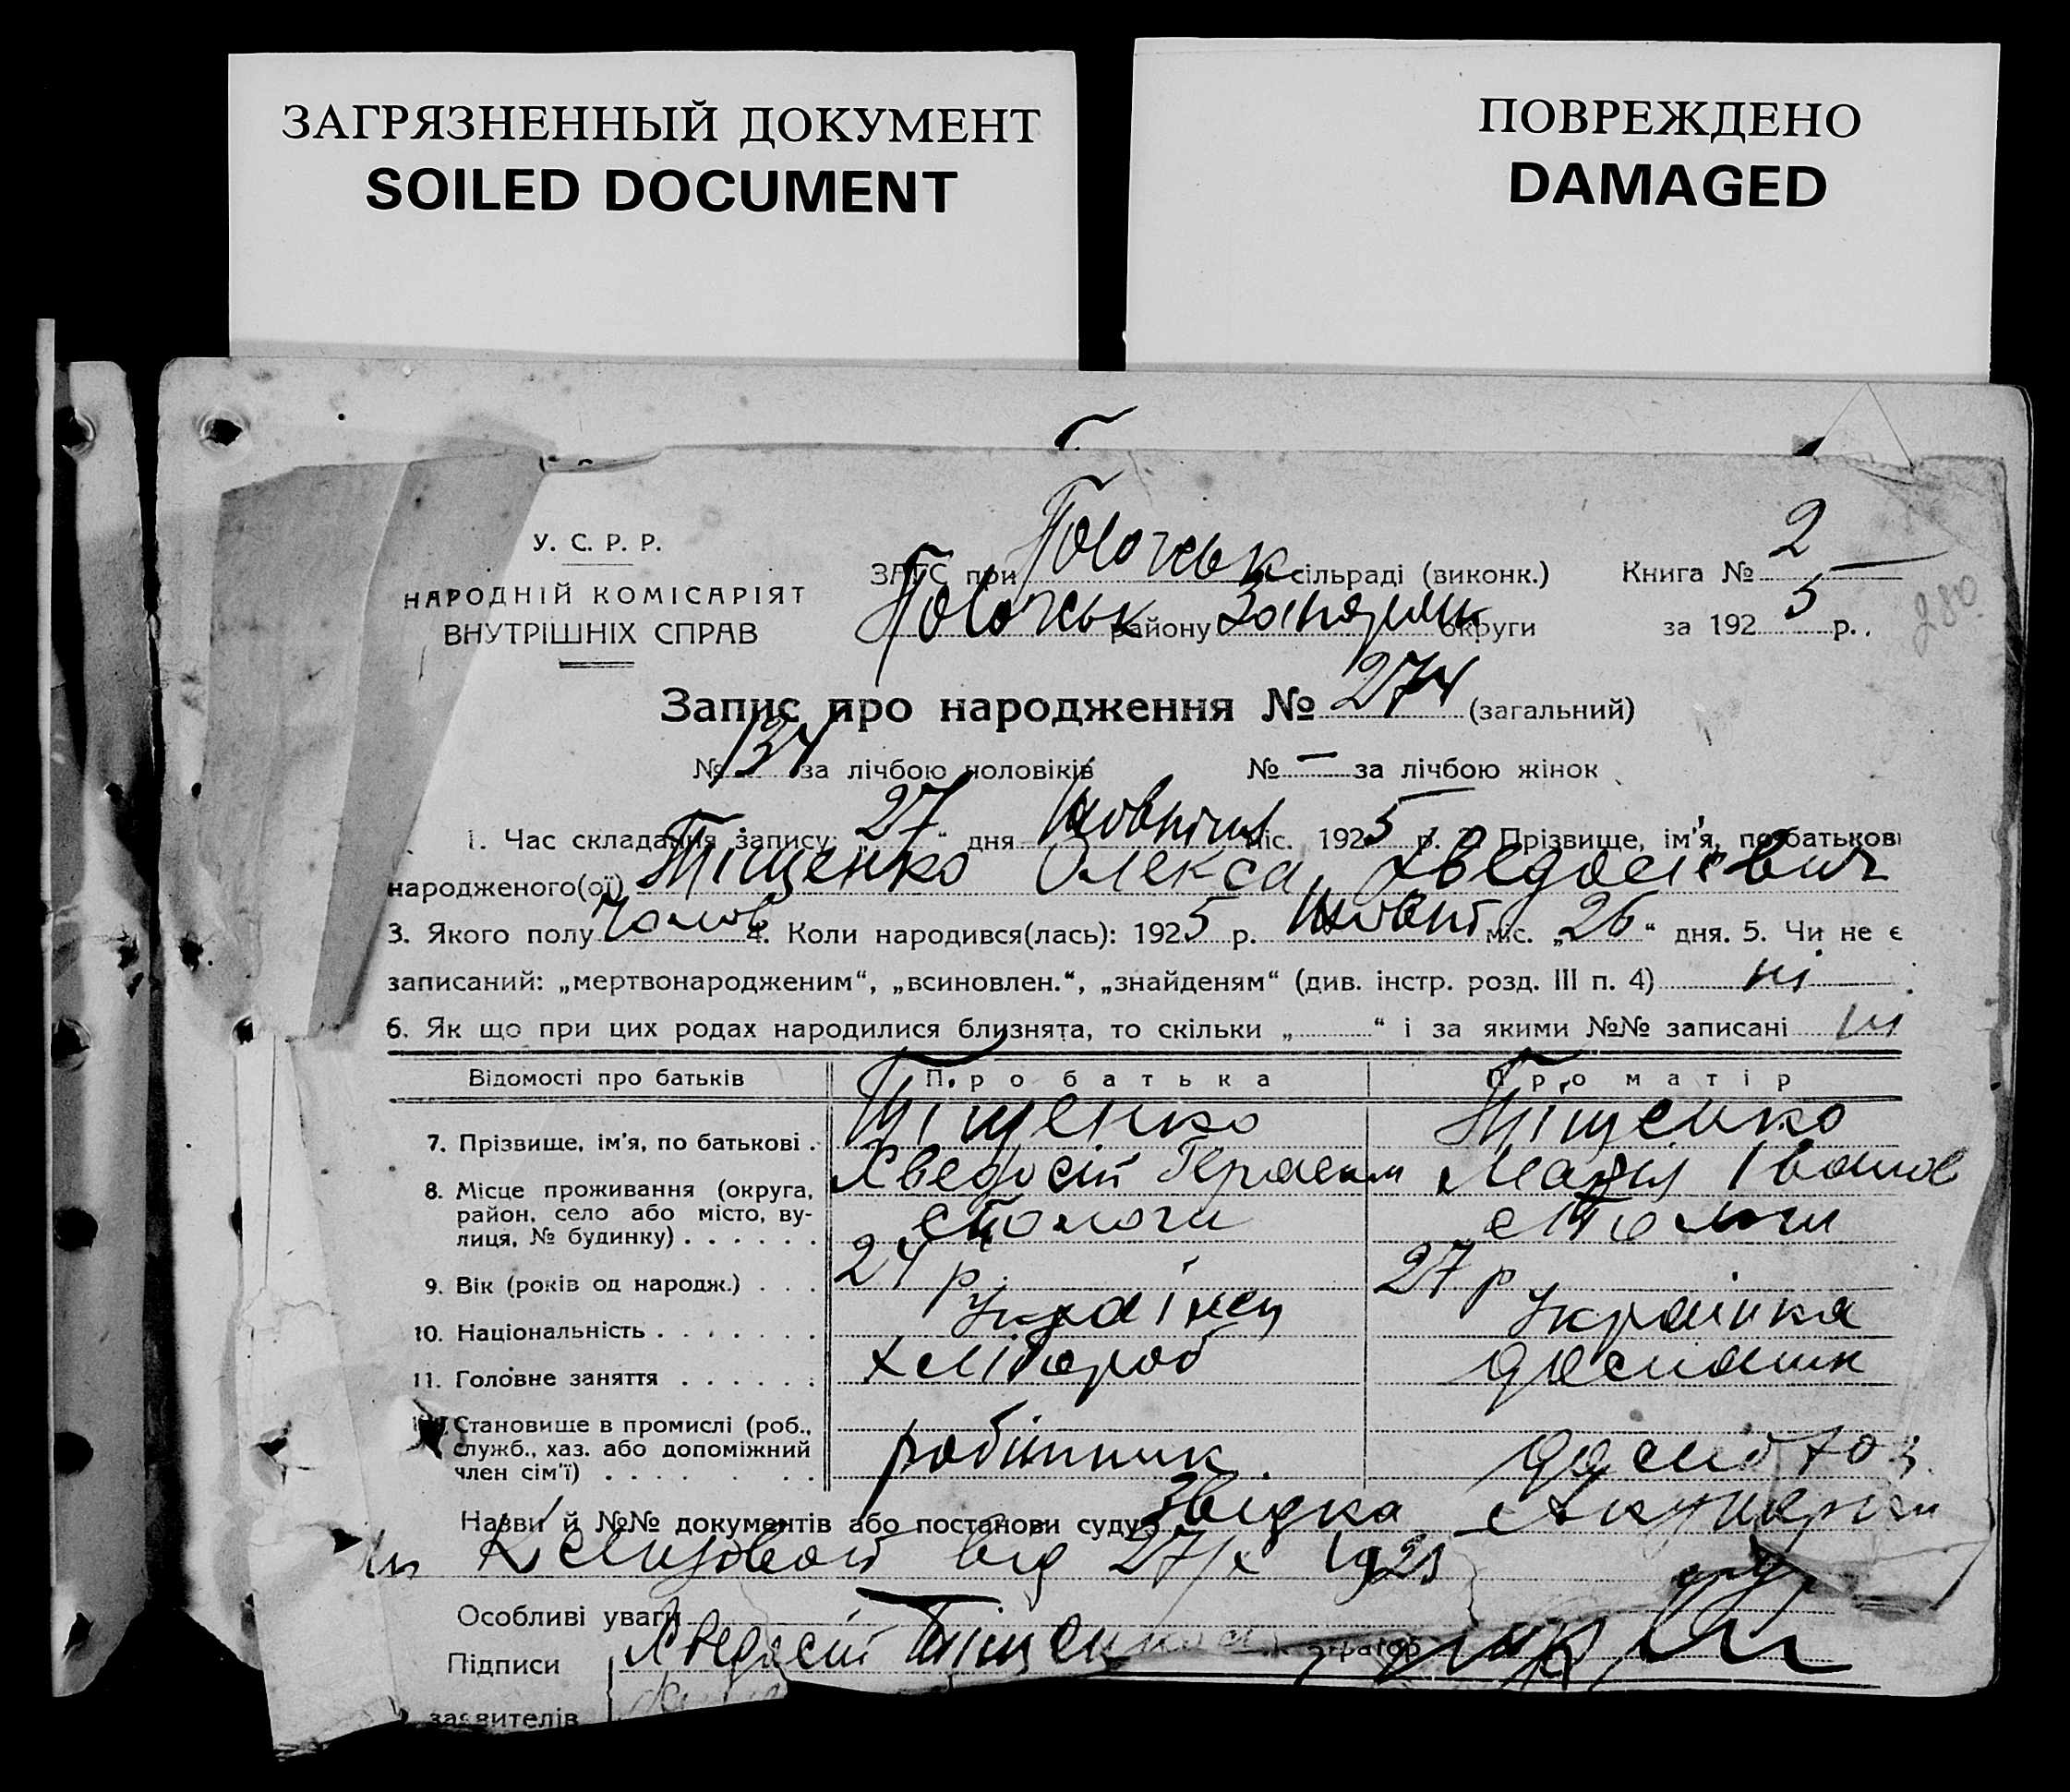 ЗАГРЯЗНЕННЫЙ ДОКУМЕНТ
SOILED DOCUMENT
ПОВРЕЖДЕНО
DAMAGED
У. С. Р. Р.
НАРОДНІЙ КОМІСАРІЯТ
ВНУТРІШНІХ СПРАВ
ЗАГС при сільраді (виконк.) Книга № 2
району округи за 1925 р.
280
Запис про народження № 274 (загальний)
№ 134 за лічбою чоловіків № – за лічбою жінок
1. Час складання запису: „27“ дня Жовтня міс. 1925 р. 2. Прізвище, ім'я, по батькові
народженого(ої) Тіщенко Олекса Хведосієвич
3. Якого полу чолов 4. Коли народився(лась): 1925 р. Жовт міс. „26“ дня. 5. Чи не є
записаний: „мертвонародженим“, „всиновлен.“, „знайденям“ (див. інстр. розд. III п. 4) ні
6. Як що при цих родах народилися близнята, то скільки „ “ і за якими №№ записані ні
Відомості про батьків Про батька Про матір
7. Прізвище, ім'я, по батькові . Тіщенко Хведосій Герасим Тіщенко Марія Іванов
8. Місце проживання (округа,
район, село або місто, ву-
лиця, № будинку) . . . . . .
9. Вік (років од народж.) . . . 24 р. 27 р
10. Національність . . . . . . . Українец Українка
11. Головне заняття . . . . . . хлібороб
Становище в промислі (роб.,
служб., хаз. або допоміжний
член сім'ї) . . . . . . . . робітник.
Назви й №№ документів або постанови суду Звідка Акушерки
від 27/X 1925
Особливі уваги
Підписи Хведосій Тіщенко
заявителів